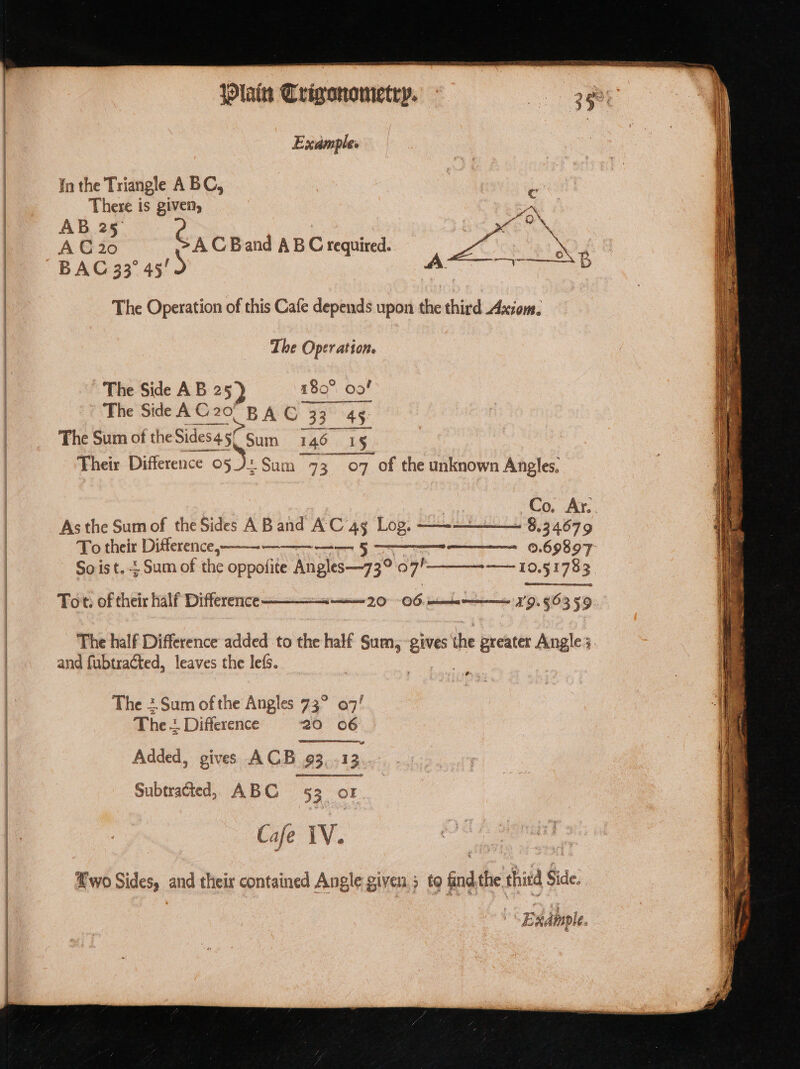 Plain Trigonometry. 35
Example.
In the Triangle A B C,
There is given,
A B 25
A C 20 A C B and A B C required.
B A C 33° 45'
C
A B
The Operation of this Caſe depends upon the third Axiom.
The Operation.
The Side A B 25 180° 00'
The Side A C 20 B A C 33 45
The Sum of the Sides 45 Sum 146 15
Their Difference 05 ½ Sum 73 07 of the unknown Angles.
Co. Ar.
As the Sum of the Sides A B and A C 45 Log. —— 8.34679
To their Difference, —— 5 —— 0.69897
So is t. ½ Sum of the oppoſite Angles—73° 07' —— 10.51783
To t. of their half Difference —— 20 06 —— 19.56359
The half Difference added to the half Sum, gives the greater Angle;
and ſubtracted, leaves the leſs.
The ½ Sum of the Angles 73° 07'
The ½ Difference 20 06
Added, gives A C B 93 13
Subtracted, A B C 53 01
Caſe IV.
Two Sides, and their contained Angle given; to find the third Side.
Example.